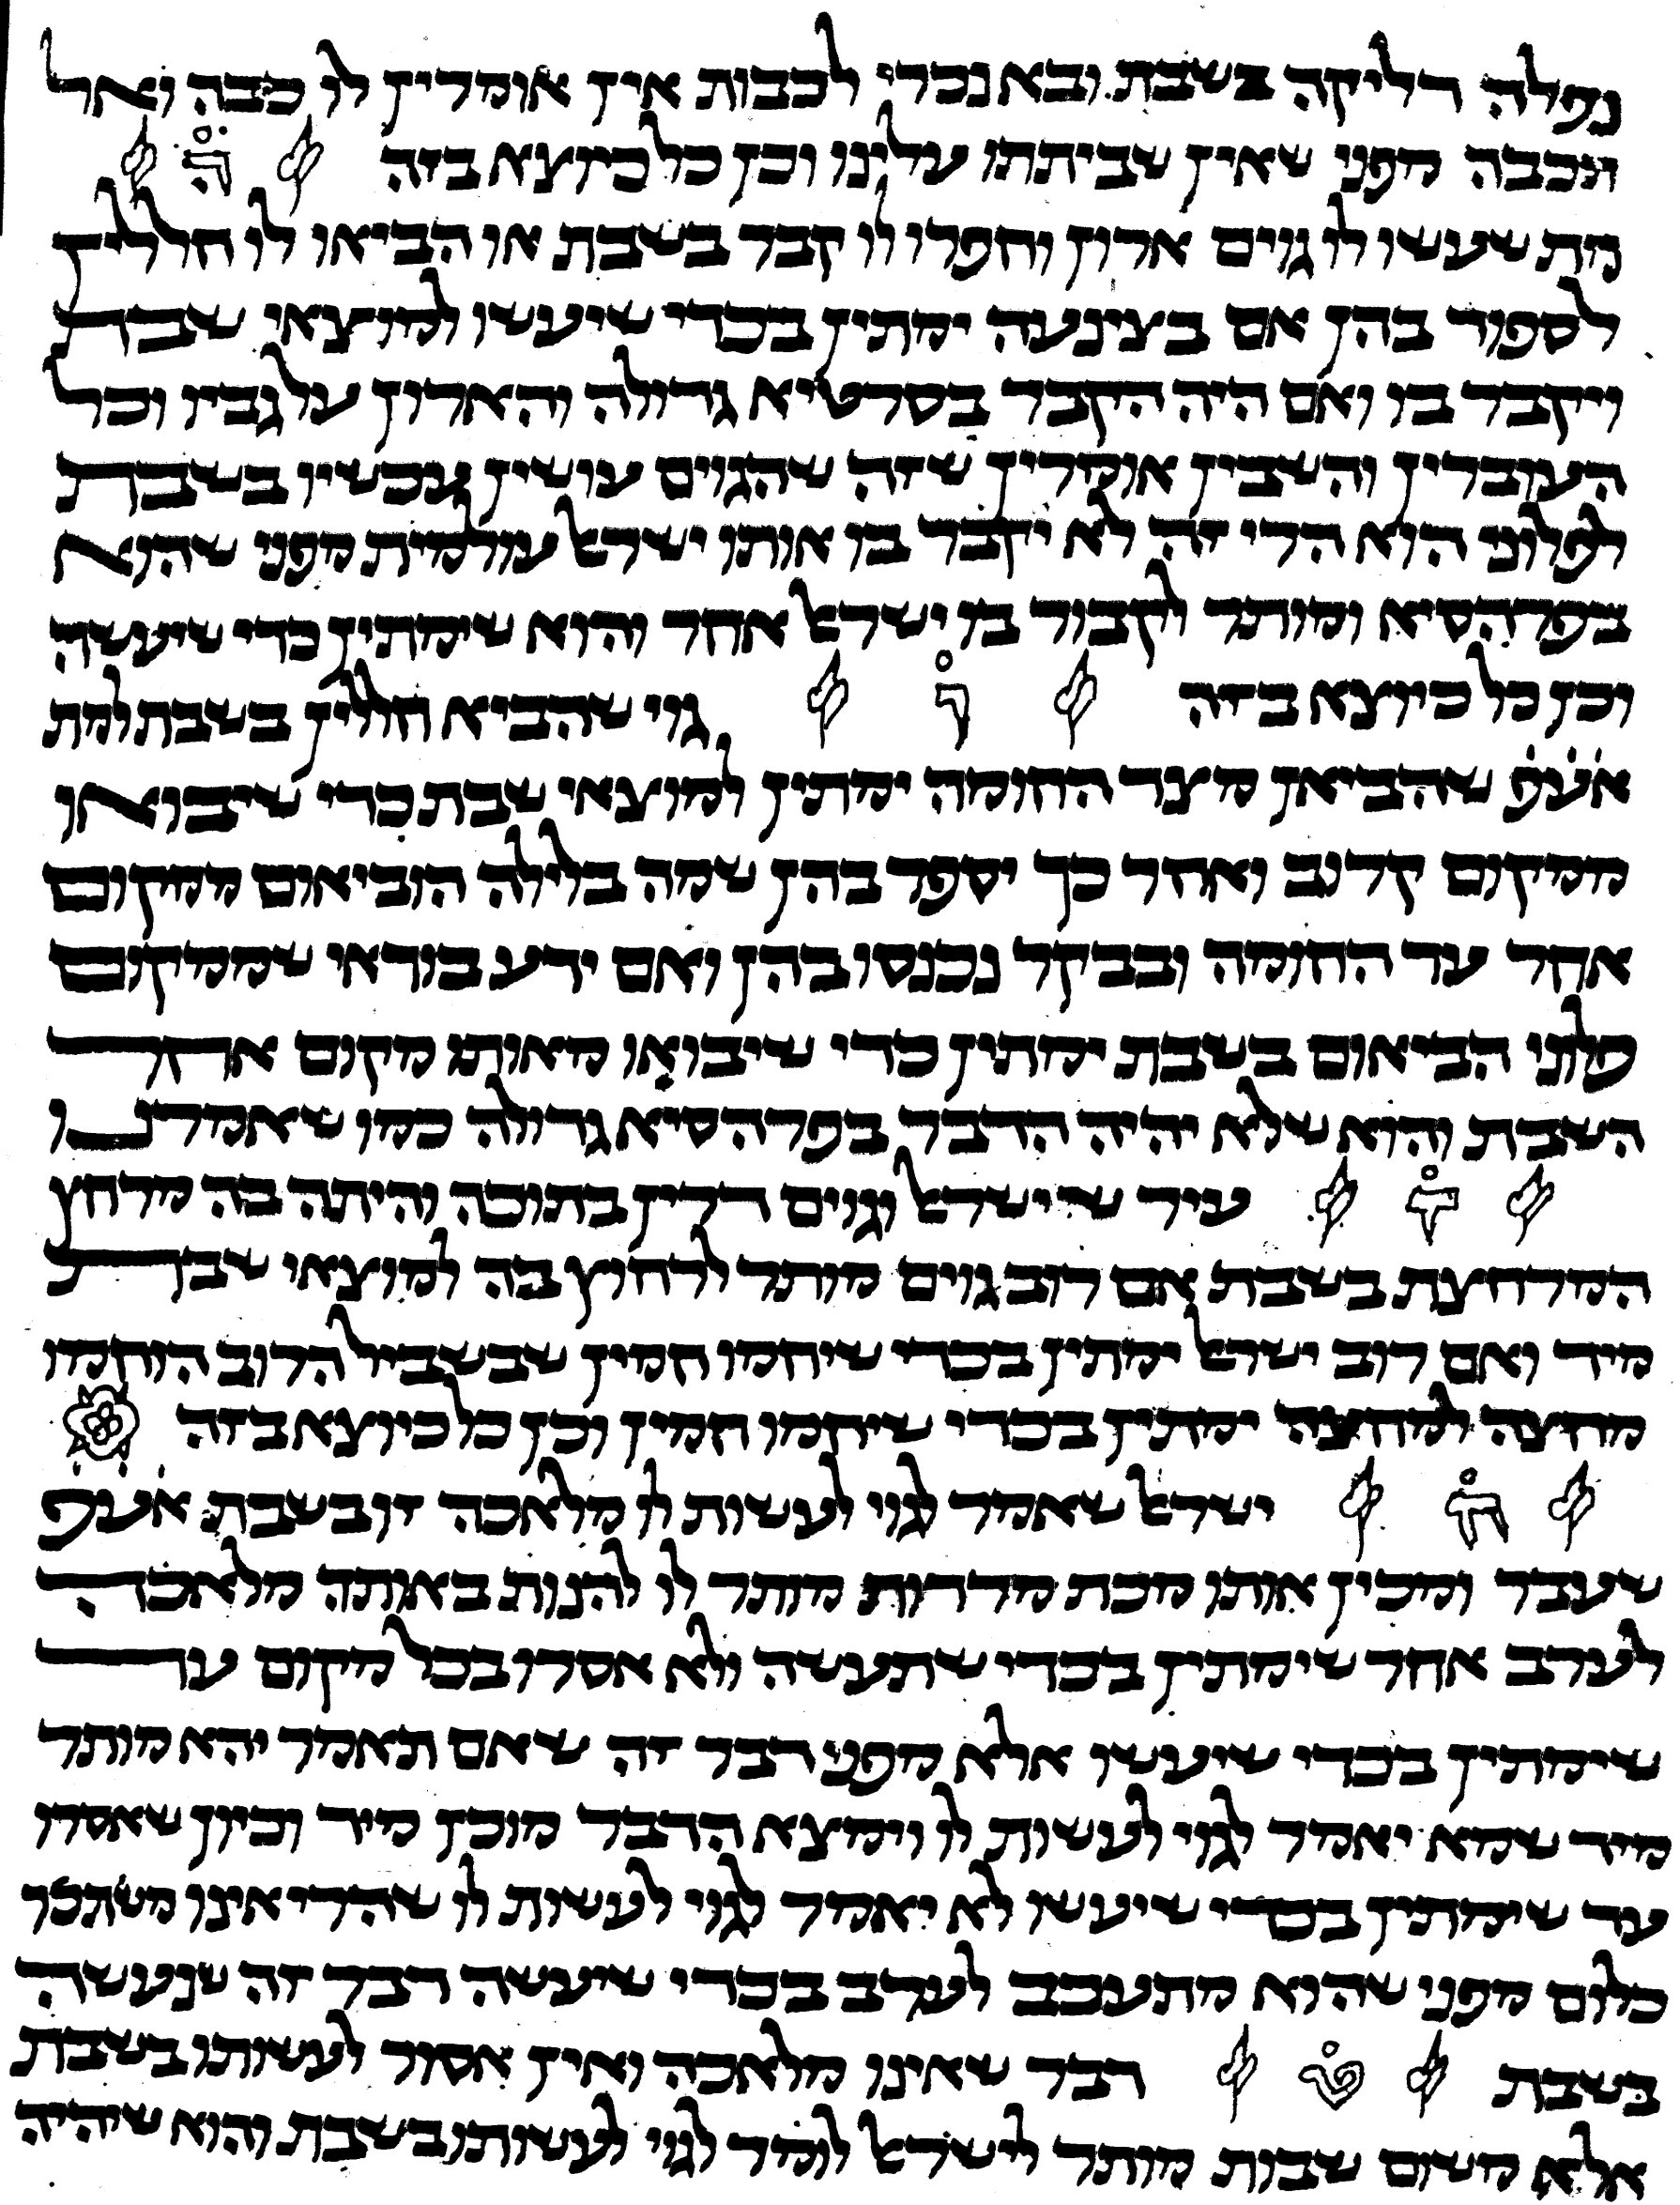 נפלה דליקה בשבת ובא נכרי לכבות אין אומרין לו כבה ואל
תכבה מפני שאין שביתתו עלינו וכן כל כיוצא בזה ה
מת שעשו לו גוים ארון וחפרו לו קבר בשבת או הביאו לו חלילין
לספוד בהן אם בצינעה ימתין בכדי שיעשו למוצאי שבת
ויקבר בו ואם היה הקבר בסרטיא גדולה והארון על גביו וכל
העוברין והשבין אומרין שזה שהגוים עושין עכשיו בשבת
לפלוני הוא הרי זה לא יקבר בו אותו ישראל עולמית מפני שהוא
בפרהסיא ומותר לקבור בו ישראל אחר והוא שימתין כדי שיעשה
וכן כל כיוצא בזה ו גוי שהביא חלילין בשבת למת
אעפ שהביאן מצד החומה ימתין למוצאי שבת כדי שיבואו
ממקום קרוב ואחר כך יספד בהן שמה בלילה הוביאום ממקום
אחר עד החומה ובבקר נכנסו בהן ואם ידע בודאי שממקום
פלוני הביאום בשבת ימתין כדי שיבואו מאותו מקום אחר
השבת והוא שלא יהיה הדבר בפרהסיא גדולה כמו שאמרנו
ז עיר שישראל וגוים דרין בתוכה והיתה בה מרחץ
המרחצת בשבת אם רוב גוים מותר לרחוץ בה למוצאי שבת
מיד ואם רוב ישראל ימתין בכדי שיחמו חמין שבשביל הרוב הוחמו
מחצה למחצה ימתין בכדי שיחמו חמין וכן כל כיוצא בזה
ח ישראל שאמר לגוי לעשות לו מלאכה זו בשבת אעפ
שעבר ומכין אותו מכת מרדות מותר לו להנות באותה מלאכה
לערב אחר שימתין בכדי שתעשה ולא אסרו בכל מקום עד
שימתין בכדי שיעשו אלא מפני דבר זה שאם תאמר יהא מותר
מיד שמא יאמר לגוי לעשות לו וימצא הדבר מוכן מיד וכיון שאסרו
עד שימתין בכדי שיעשו לא יאמר לגוי לעשות לו שהרי אינו משתכר
כלום מפני שהוא מתעכב לערב בכדי שיעשה דבר זה שנעשה
בשבת ט דבר שאינו מלאכה ואין אסור לעשותו בשבת
אלא משום שבות מותר לישראל לומר לגוי לעשותו בשבת והוא שיהיה